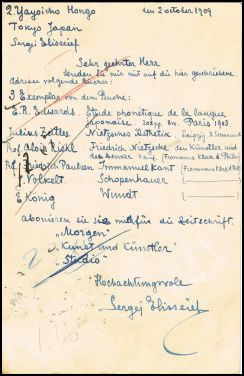 2. Yayoicho Hongo den 2 october 1909
Tokyo Japan
Sergej Elisseief
Sehr geehrter Herr
senden Sie mir auf die hier geschriebene
adresse folgende Bücher:
3 Exemplar von dem Buche:
E. R. Edwards. Étude phonétique de la langue
japonaise. Paris 1903.
Julius Zeitler Nietzsches Ästhetik Leipzig
Prof Alois Riehl Friedrich Nietzsche der Künstler und
der Denker
Prof Friedrich Paulsen Immanuel Kant
J. Volkelt. Schopenhauer
E. König Wundt
abonieren Sie mich für die Zeitschrift.
"Morgen"
"Kunst und Künstler"
"Studio"
Hochachtungsvole
Sergej Elisseief